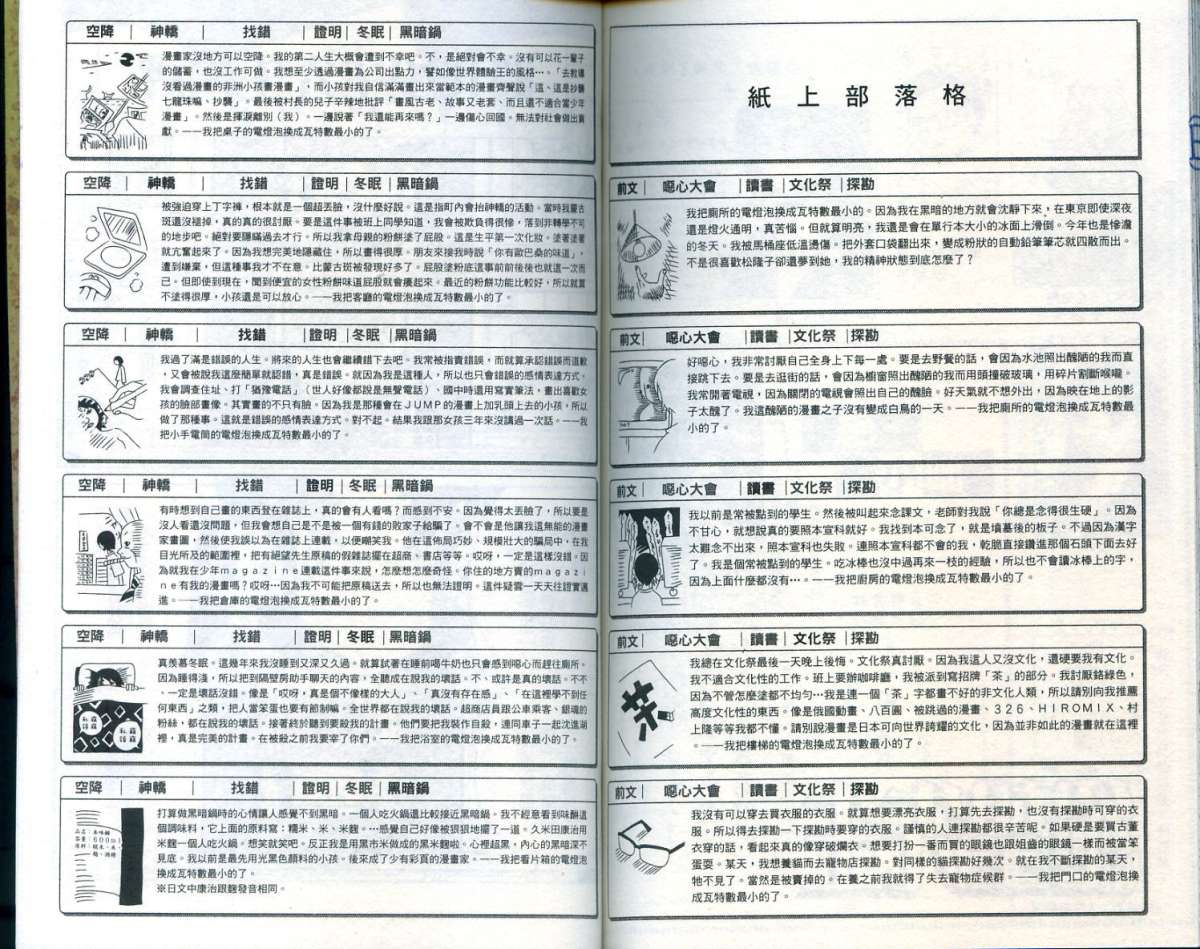 紙上部落格
前文│噁心大會│讀書│文化祭│探勘
我把廁所的電燈泡換成瓦特數最小的。因為我在黑暗的地方就會沈靜下來，在東京即使深夜
還是燈火通明，真苦惱。但就算明亮，我還是會在單行本大小的冰面上滑倒。今年也是慘澹
的冬天。我被馬桶座低溫燙傷。把外套口袋翻出來，變成粉狀的自動鉛筆筆芯就四散而出。
不是很喜歡松隆子卻還夢到她，我的精神狀態到底怎麼了？
前文│噁心大會│讀書│文化祭│探勘
好噁心，我非常討厭自己全身上下每一處。要是去野餐的話，會因為水池照出醜陋的我而直
接跳下去。要是去逛街的話，會因為櫥窗照出醜陋的我而用頭撞破玻璃，用碎片割斷喉嚨。
我常開著電視，因為關閉的電視會照出自己的醜臉。好天氣就不想外出，因為映在地上的影
子太醜了。我這醜陋的漫畫之子沒有變成白鳥的一天。——我把廁所的電燈泡換成瓦特數最
小的了。
前文│噁心大會│讀書│文化祭│探勘
我以前是常被點到的學生。然後被叫起來念課文，老師對我說「你總是念得很生硬」。因為
不甘心，就想說真的要照本宣科就好。我找到本可念了，就是墳墓後的板子。不過因為漢字
太難念不出來，照本宣科也失敗。連照本宣科都不會的我，乾脆直接鑽進那個石頭下面去好
了。我是個常被點到的學生。吃冰棒也沒中過再來一枝的經驗，所以也不會讀冰棒上的字，
因為上面什麼都沒有…。——我把廚房的電燈泡換成瓦特數最小的了。
前文│噁心大會│讀書│文化祭│探勘
我總在文化祭最後一天晚上後悔。文化祭真討厭。因為我這人又沒文化，還硬要我有文化。
我不適合文化性的工作。班上要辦咖啡廳，我被派到寫招牌「茶」的部分。我討厭鉻綠色，
因為不管怎麼塗都不均勻…我是連一個「茶」字都畫不好的非文化人類，所以請別向我推薦
高度文化性的東西。像是俄國動畫、八百圓、被跳過的漫畫、３２６、ＨＩＲＯＭＩＸ、村
上隆等等我都不懂。請別說漫畫是日本可向世界誇耀的文化，因為並非如此的漫畫就在這裡
。——我把樓梯的電燈泡換成瓦特數最小的了。
前文│噁心大會│讀書│文化祭│探勘
我沒有可以穿去買衣服的衣服。就算想要漂亮衣服，打算先去探勘，也沒有探勘時可穿的衣
服。所以得去探勘一下探勘時要穿的衣服。謹慎的人連探勘都很辛苦呢。如果硬是要買古董
衣穿的話，看起來真的像穿破爛衣。想要打扮一番而買的眼鏡也跟姐齒的眼鏡一樣而被當笨
蛋耍。某天，我想養貓而去寵物店探勘。對同樣的貓探勘好幾次。就在我不斷探勘的某天，
牠不見了。當然是被賣掉的。在養之前我就得了失去寵物症候群。——我把門口的電燈泡換
成瓦特數最小的了。
空降│神轎│找錯│證明│冬眠│黑暗鍋
漫畫家沒地方可以空降。我的第二人生大概會遭到不幸吧。不，是絕對會不幸。沒有可以花一輩子
的儲蓄，也沒工作可做。我想至少透過漫畫為公司出點力，譬如像世界體驗王的風格…。「去教導
沒看過漫畫的非洲小孩畫漫畫」，而小孩對我自信滿滿畫出來當範本的漫畫齊聲說「這、這是抄襲
七龍珠嘛、抄襲」。最後被村長的兒子辛辣地批評「畫風古老、故事又老套、而且還不適合當少年
漫畫」。然後是揮淚離別（我）。一邊說著「我還能再來嗎？」一邊傷心回國。無法對社會做出貢
獻。——我把桌子的電燈泡換成瓦特數最小的了。
空降│神轎│找錯│證明│冬眠│黑暗鍋
被強迫穿上丁字褲，根本就是一個超丟臉，沒什麼好說。這是指町內會抬神轎的活動。當時我蒙古
斑還沒褪掉，真的真的很討厭。要是這件事被班上同學知道，我會被欺負得很慘，落到非轉學不可
的地步吧。絕對要隱瞞過去才行。所以我拿母親的粉餅塗了屁股。這是生平第一次化妝。塗著塗著
就亢奮起來了。因為我想完美地隱藏住，所以畫得很厚。朋友來接我時說「你有歐巴桑的味道」，
遭到嫌棄，但這種事我才不在意。比蒙古斑被發現好多了。屁股塗粉底這事前前後後也就這一次而
已。但即使到現在，聞到便宜的女性粉餅味道屁股就會癢起來。最近的粉餅功能比較好，所以就算
不塗得很厚，小孩還是可以放心。——我把客廳的電燈泡換成瓦特數最小的了。
空降│神轎│找錯│證明│冬眠│黑暗鍋
我過了滿是錯誤的人生。將來的人生也會繼續錯下去吧。我常被指責錯誤，而就算承認錯誤而道歉
，又會被說我這麼簡單就認錯，真是錯誤。就因為我是這種人，所以也只會錯誤的感情表達方式。
我會調查住址、打「猶豫電話」（世人好像都說是無聲電話）、國中時還用寫實筆法，畫出喜歡女
孩的臉部畫像。其實畫的不只有臉。因為我是那種會在ＪＵＭＰ的漫畫上加乳頭上去的小孩，所以
做了那種事。這就是錯誤的感情表達方式。對不起。結果我跟那女孩三年來沒講過一次話。——我
把小手電筒的電燈泡換成瓦特數最小的了。
空降│神轎│找錯│證明│冬眠│黑暗鍋
有時想到自己畫的東西登在雜誌上，真的會有人看嗎？而感到不安。因為覺得太丟臉了，所以要是
沒人看還沒問題，但我會想自己是不是被一個有錢的敗家子給騙了。會不會是他讓我這無能的漫畫
家畫圖，然後使我誤以為在雜誌上連載，以便嘲笑我。他在這佈局巧妙、規模壯大的騙局中，在我
目光所及的範圍裡，把有絕望先生原稿的假雜誌擺在超商、書店等等。哎呀，一定是這樣沒錯。因
為就我在少年ｍａｇａｚｉｎｅ連載這件事來說，怎麼想怎麼奇怪。你住的地方賣的ｍａｇａｚｉ
ｎｅ有我的漫畫嗎？哎呀…因為我不可能把原稿送去，所以也無法證明。這件疑雲一天天往證實邁
進。——我把倉庫的電燈泡換成瓦特數最小的了。
空降│神轎│找錯│證明│冬眠│黑暗鍋
真羨慕冬眠。這幾年來我沒睡到又深又久過。就算試著在睡前喝牛奶也只會感到噁心而趕往廁所。
因為睡得淺，所以把到隔壁房助手聊天的內容，全聽成在說我的壞話。不、或許是真的壞話。不不
、一定是壞話沒錯。像是「哎呀，真是個不像樣的大人」、「真沒有存在感」、「在這裡學不到任
何東西」之類，把人當笨蛋也要有節制嘛。全世界都在說我的壞話。超商店員跟公車乘客、銀魂的
粉絲，都在說我的壞話。接著終於聽到要殺我的計畫。他們要把我裝作自殺，連同車子一起沈進湖
裡，真是完美的計畫。在被殺之前我要宰了你們。——我把浴室的電燈泡換成瓦特數最小的了。
空降│神轎│找錯│證明│冬眠│黑暗鍋
打算做黑暗鍋時的心情讓人感覺不到黑暗。一個人吃火鍋還比較接近黑暗鍋。我不經意看到味醂這
個調味料，它上面的原料寫：糯米、米、米麴。…感覺自己好像被狠狠地擺了一道。久米田康治用
米麴一個人吃火鍋。想笑就笑吧。反正我是用黑市米做成的黑米麴啦。心裡超黑，內心的黑暗深不
見底。我以前是最先用光黑色顏料的小孩。後來成了少有彩頁的漫畫家。——我把看片箱的電燈泡
換成瓦特數最小的了。
※日文中康治跟麴發音相同。